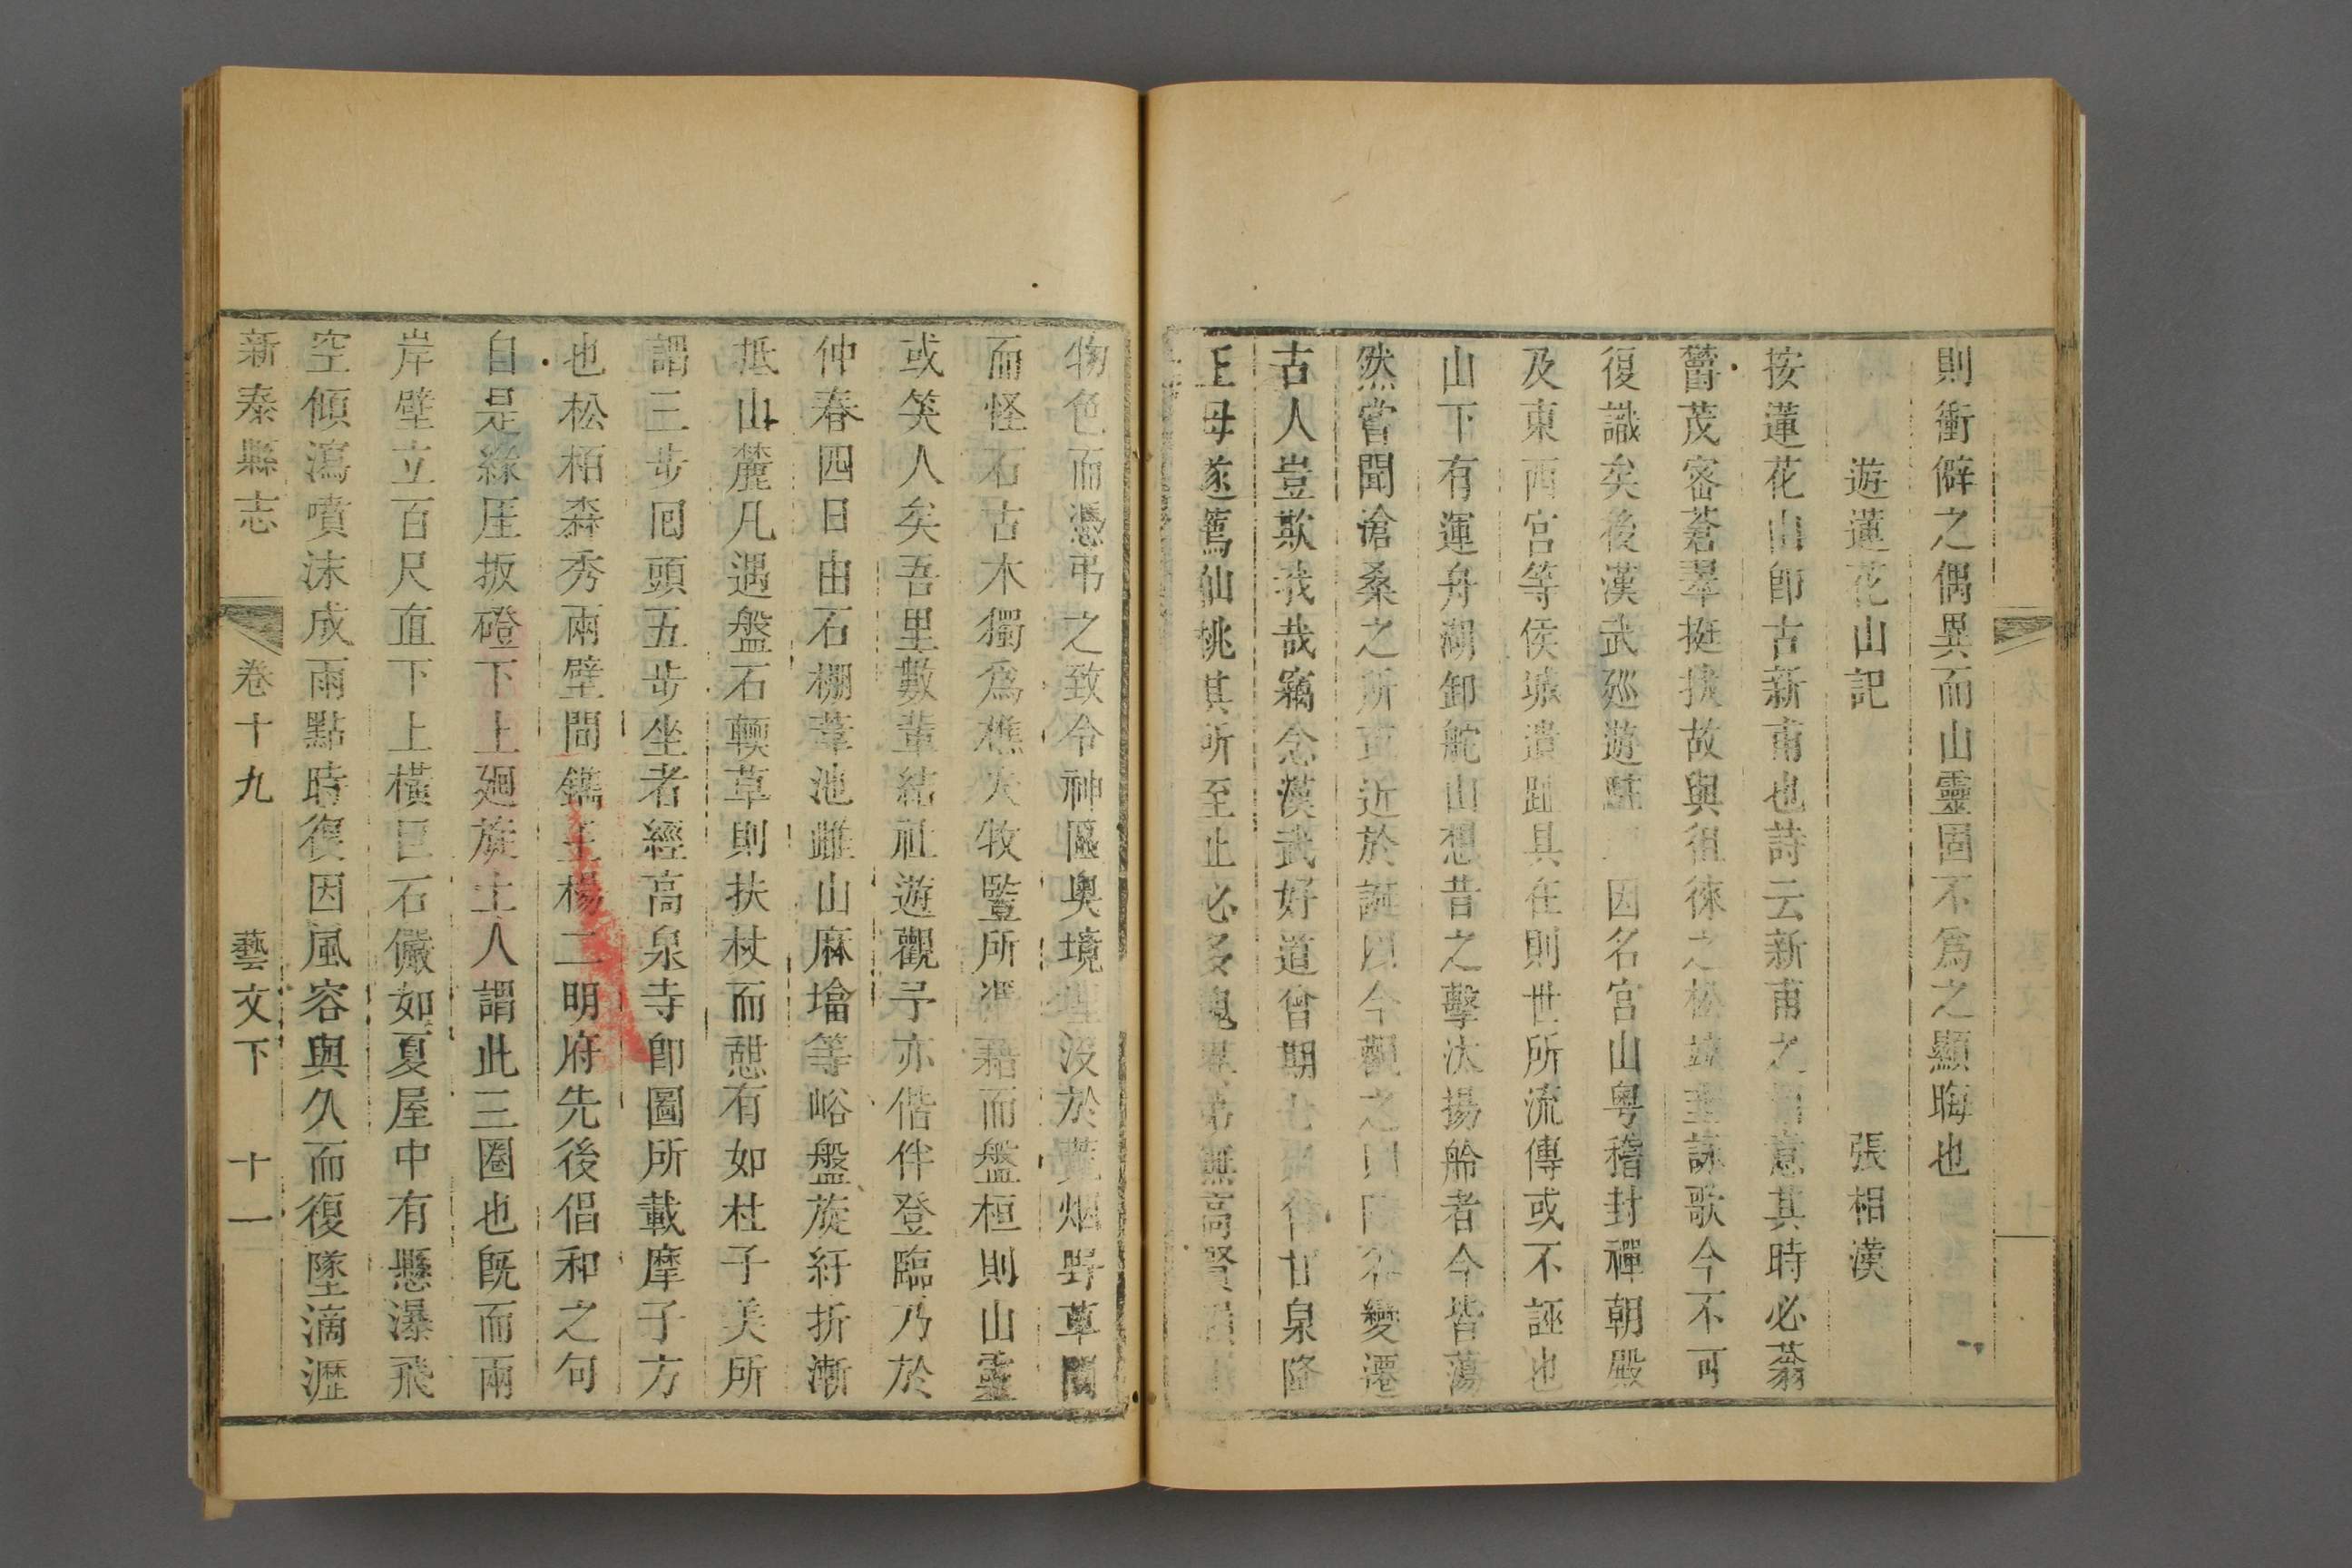 則衝僻之偶異而山靈固不爲之顯晦也
遊蓮花山記
張相漢
按蓮花山卽古新甫也詩云新甫之意其時必蓊
蘙茂密蒼翠挺拔故與徂徠之松竝重詠歌今不可
復識矣後漢武廵遊駐因名宮山粤稽封禪朝殿
及東西宮等侯城遺趾具在則世所流傳或不誣也
山下有運舟湖卸舵山想昔之擊汰揚舲者今皆蕩
然嘗聞滄桑之所近於誕以今觀之變遷
古人豈欺我哉竊念漢武好道曾期甘泉降
王母遂薦仙桃其所至止必多高賢
物色而憑弔之致令神區奥境埋没於荒烟野草間
而怪石古木獨爲樵夫牧豎所憑藉而盤桓則山靈
或笑人矣吾里數輩結社遊觀予亦偕伴登臨乃於
仲春四日由石棚葦池雌山麻墖等峪盤旋紆折漸
抵山麓凡遇盤石輭草則扶杖而憇有如杜子美所
謂三步囘頭五步坐者經高泉寺卽圖所載摩子方
也松栢森秀兩壁間鐫王楊二明府先後倡和之句
自是緣厓扳磴下上廻旋土人謂此三圈也旣而兩
岸壁立百尺直下上橫巨石儼如夏屋中有懸瀑飛
空傾瀉噴沫成雨點時復因風容與久而復墜滴瀝
新泰縣志
卷十九
藝文下
十一